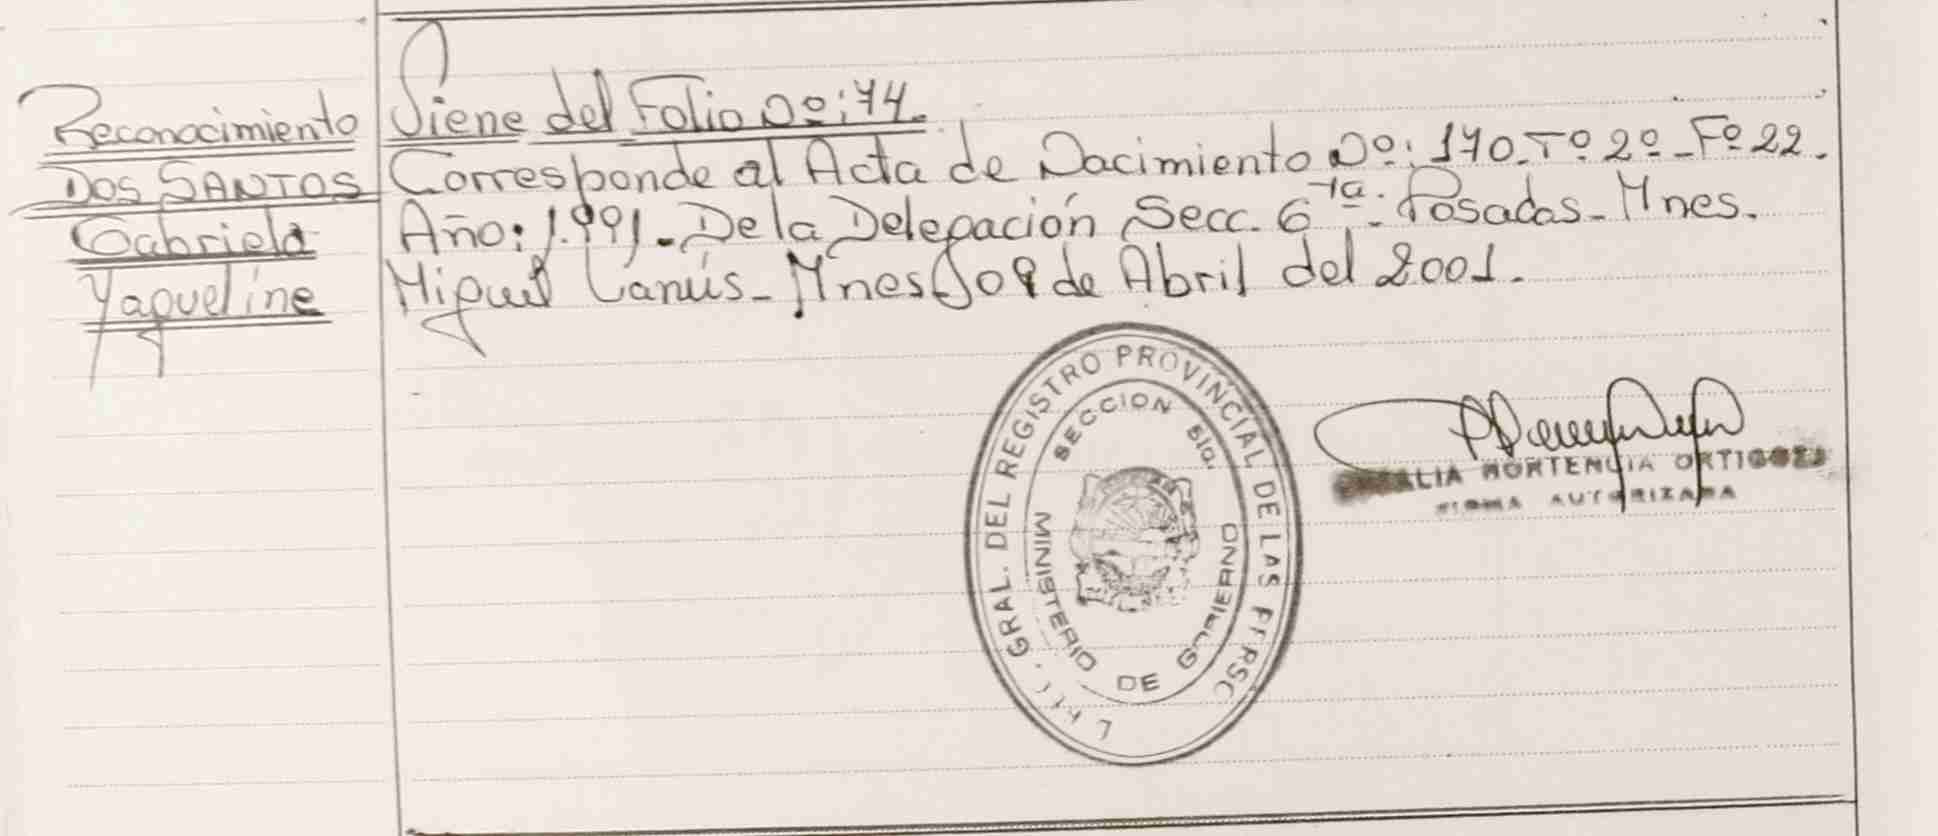 Reconocimiento
DOS SANTOS
Gabriela
Yaqueline
Viene del Folio Nº: 74.
Corresponde al Acta de Nacimiento Nº: 170. Tº 2º - Fº 22.
Año: 1.991. - De la Delegación Secc. 6ta. Posadas - Mnes.
Miguel Lanús - Mnes, 09 de Abril del 2001.
GRAL. DEL REGISTRO PROVINCIAL DE LAS
SECCION 5ta.
MINISTERIO DE GOBIERNO
HORTENCIA ORTIGOZA
FIRMA AUTORIZADA